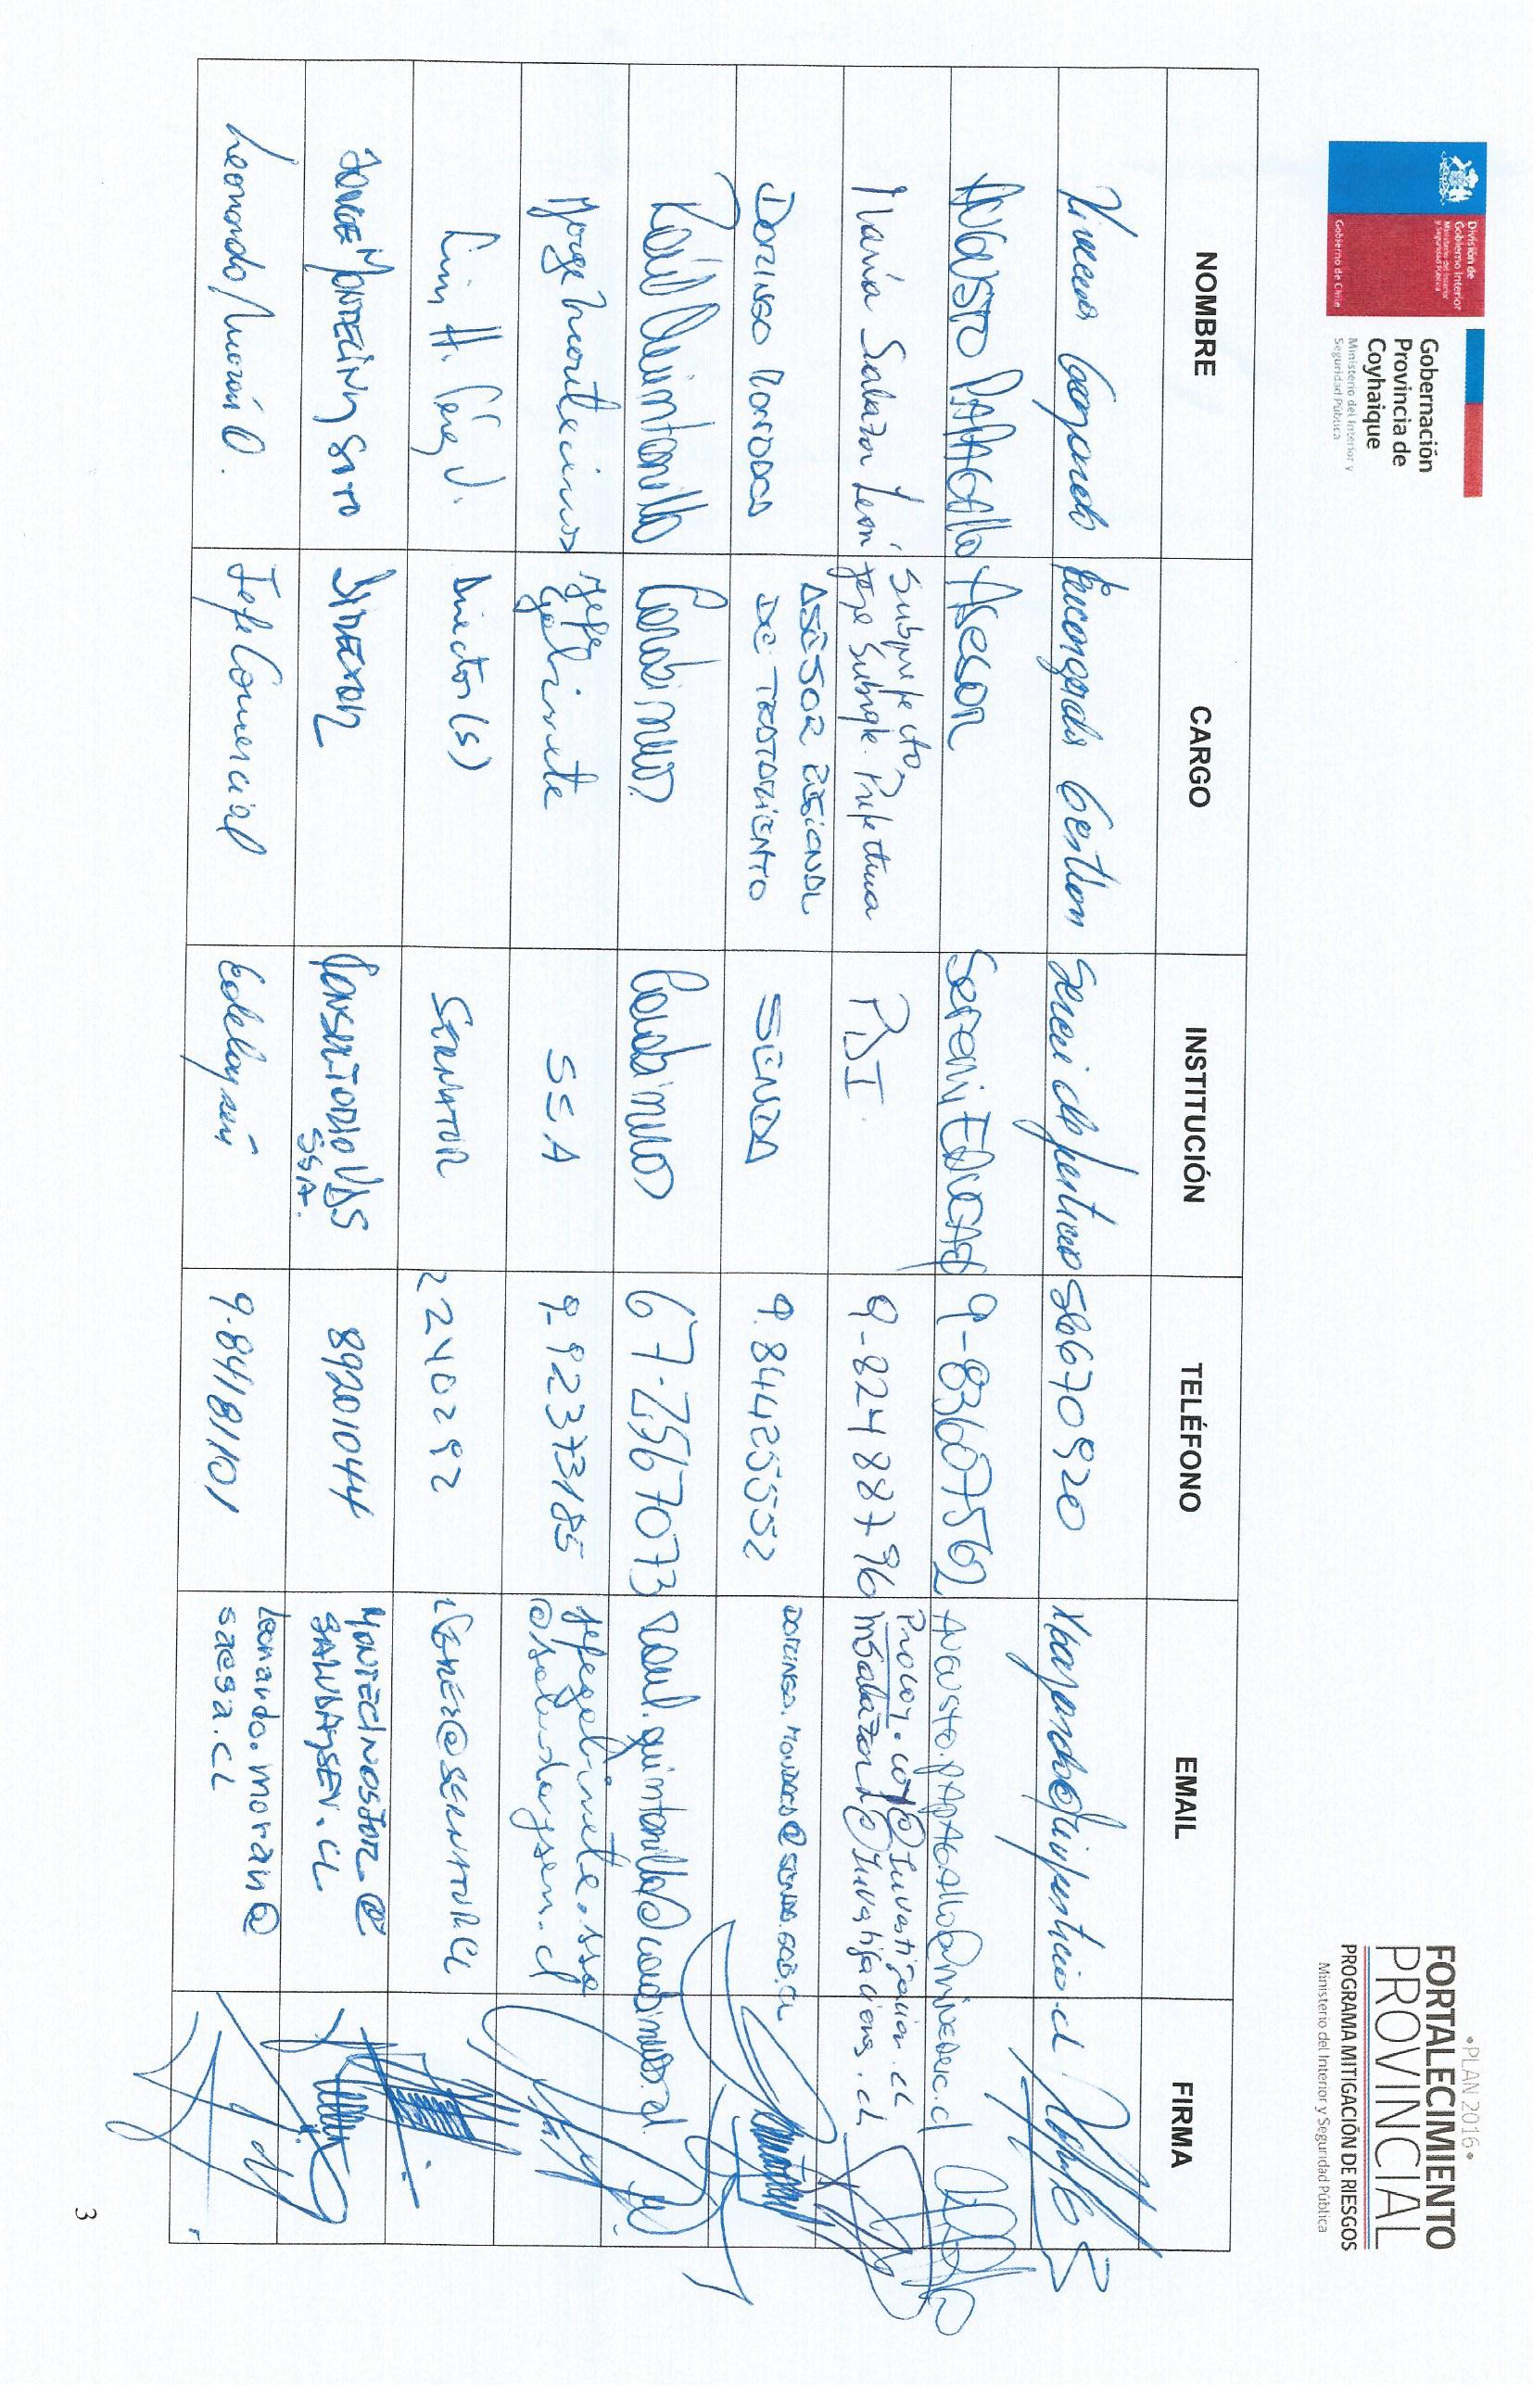 División de
Gobierno Interior
Ministerio del Interior
y Seguridad Pública
Gobierno de Chile
Gobernación
Provincia de
Coyhaique
Ministerio del Interior y
Seguridad Pública
•PLAN 2016•
FORTALECIMIENTO
PROVINCIAL
PROGRAMA MITIGACIÓN DE RIESGOS
Ministerio del Interior y Seguridad Pública
NOMBRE CARGO INSTITUCIÓN TELÉFONO EMAIL FIRMA
Ximena Encargada Gestion Seremi de Justicia 56670920
AUGUSTO PAPAGAllo ASESOR Seremi 9-83607562 AUGUSTO.PAPAGAllo@MINEDUC.cl
María Salazar León Subprefecto, PDI 9-82488796
DOMINGO MONDACA ASESOR REGIONAL
DE TRATAMIENTO SENDA 9.84425552 DOMINGO.MONDACA@SENDA.GOB.CL
Raúl Quintanilla Carabineros Carabineros 67-2567073 raul.quintanilla@carabineros.cl
Jorge Montecinos Jefe
Gabinete SSA 9-92373185 jefegabinete.ssa
@saludaysen.cl
Luis H. Pérez V. Director (S) SERNATUR 2240292
JORGE MONTECINOS SOTO DIRECTOR CONSULTORIO
SSA. 89201044 MONTECINOSJOR@
SALUDAYSEN.CL
Leonardo Morán O. Jefe Comercial Edelaysén 9-84181101 Leonardo.moran@
saesa.CL
3